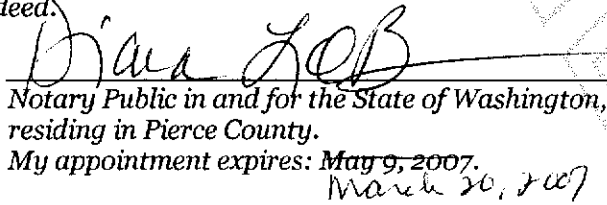 deed.
Notary Public in and for the State of Washington,
residing in Pierce County.
My appointment expires: May 9, 2007.
March 20, 2007